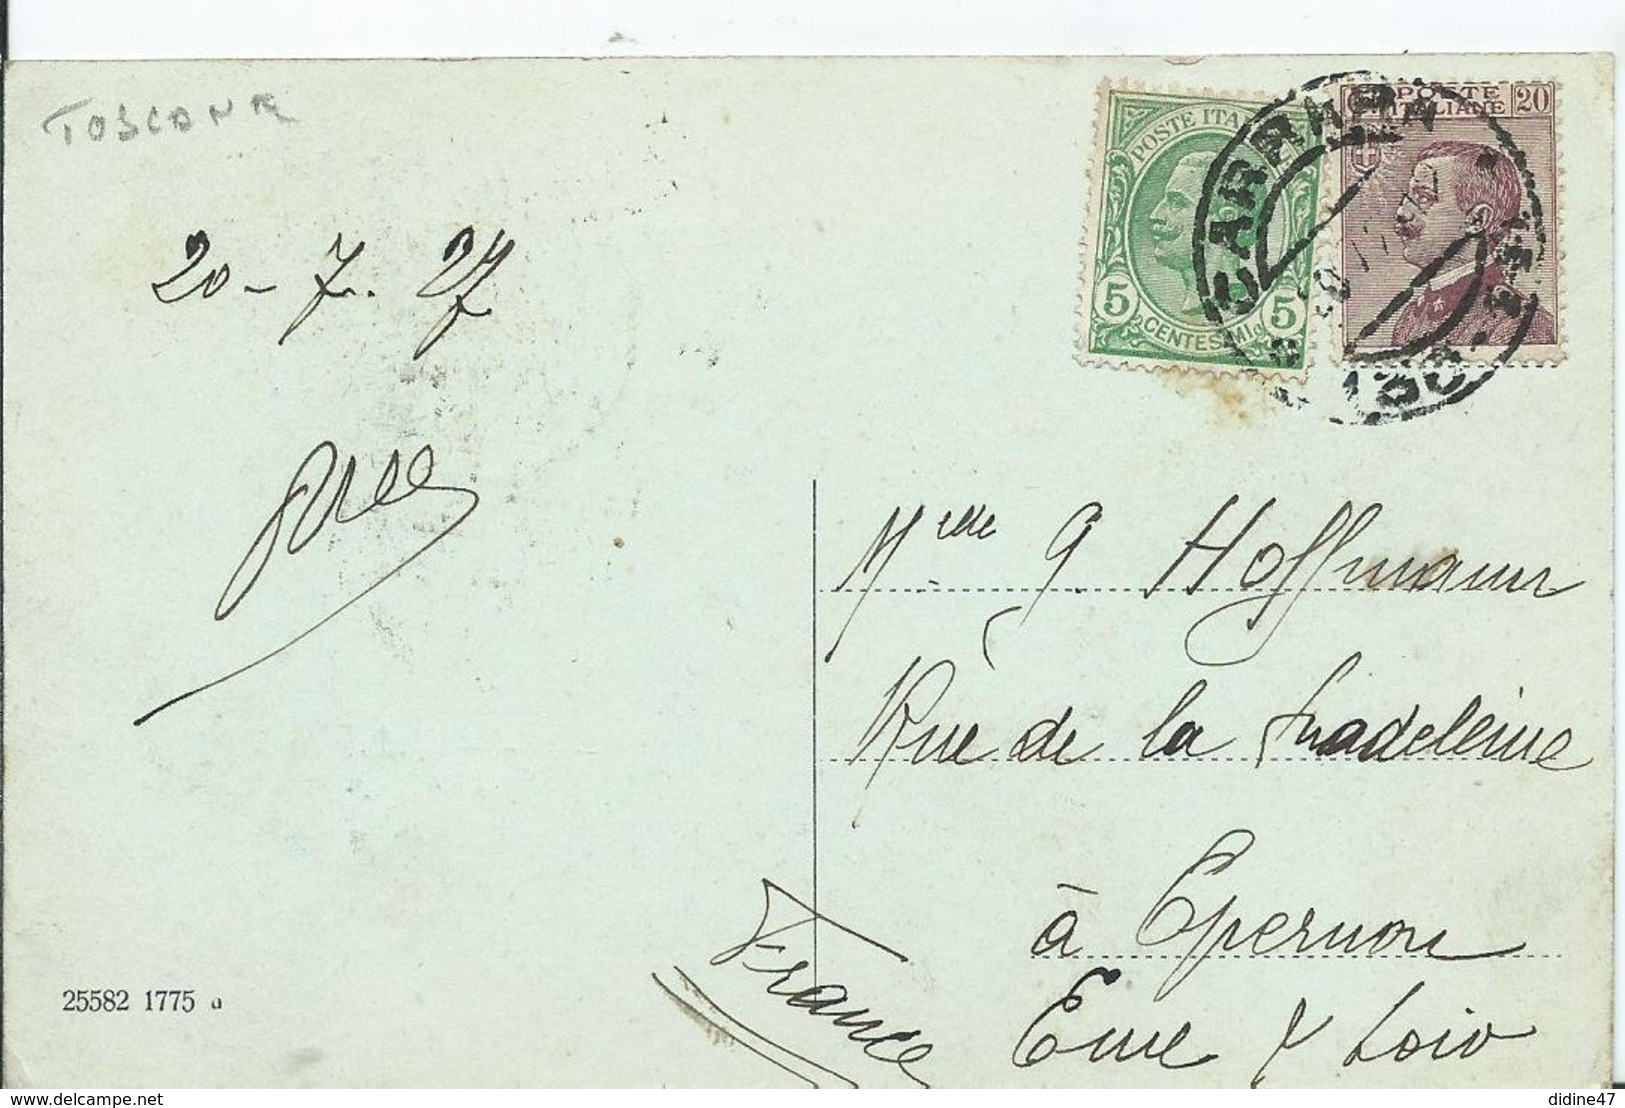 TOSCANA
20-7. 27
POSTE ITA
5 CENTESIMI 5
POSTE ITALIANE 20
CARRARA
Melle G. Hoffmann
Rue de la Madeleine
à Epernon
Eure & Loir
France
25582 1775 a
delcampe.net
didine47